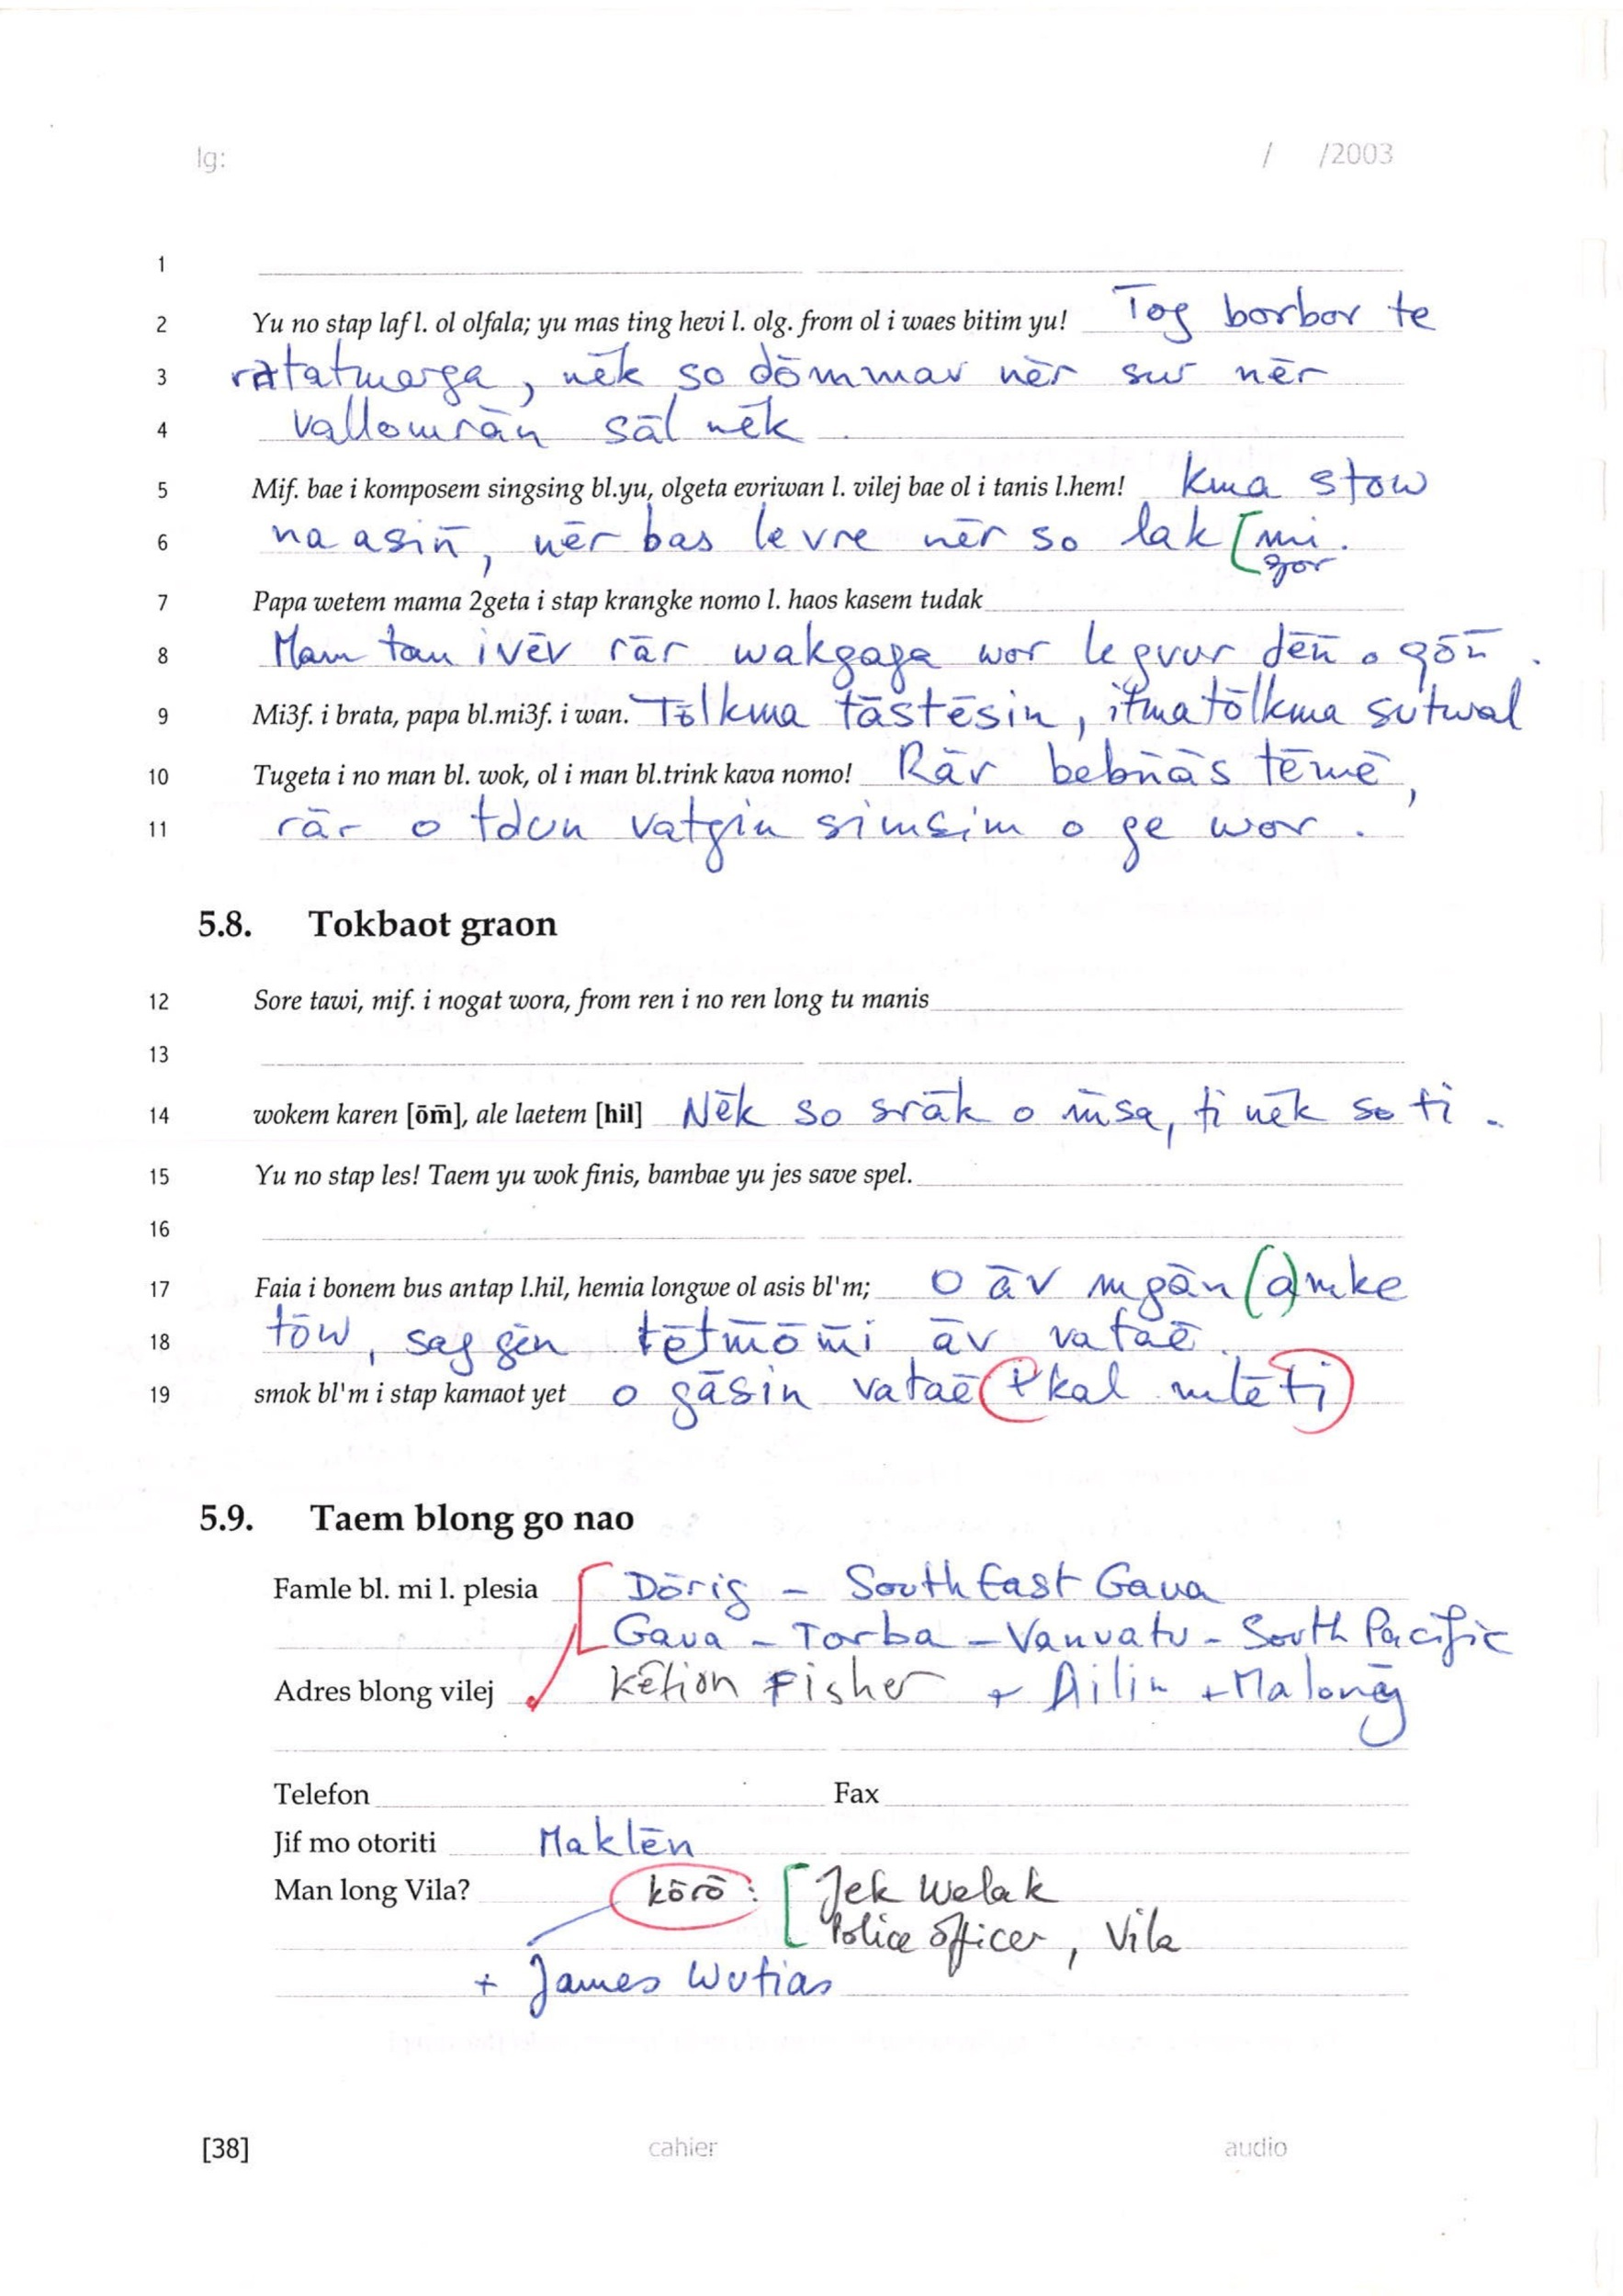 lg: / /2003
1
2 Yu no stap laf l. ol olfala; yu mas ting hevi l. olg. from ol i waes bitim yu! Tog borbor te
3 ratatmarga, nēk so dōmmav nēr sur nēr
4 vallowrān sāl nēk .
5 Mif. bae i komposem singsing bl.yu, olgeta evriwan l. vilej bae ol i tanis l.hem! kma stow
6 na asin̄, nēr bas le vre nēr so lak [mi.
gor
7 Papa wetem mama 2geta i stap krangke nomo l. haos kasem tudak
8 Mam tan ivēv rār wakgaga wor le gvur dēn̄ o qōn̄ .
9 Mi3f. i brata, papa bl.mi3f. i wan. Tōlkma tāstēsin, itmatōlkma sutwal
10 Tugeta i no man bl. wok, ol i man bl.trink kava nomo! Rār bebn̄ās tēmē,
11 rār o tdun vatgin simsim o ge wor .
5.8. Tokbaot graon
12 Sore tawi, mif. i nogat wora, from ren i no ren long tu manis
13
14 wokem karen [ōm̄], ale laetem [hil] Nēk so srāk o m̄sa, ti nēk so ti .
15 Yu no stap les! Taem yu wok finis, bambae yu jes save spel.
16
17 Faia i bonem bus antap l.hil, hemia longwe ol asis bl'm; o āv mgān (a)mke
18 tōw, sag gēn tētm̄ōm̄i āv vataē.
19 smok bl'm i stap kamaot yet o gāsin vataē (t kal mtē ti)
5.9. Taem blong go nao
Famle bl. mi l. plesia Dōrig – South East Gaua
Gaua – Torba – Vanuatu – South Pacific
Adres blong vilej Kētion Fisher + Ailin + Malonēg
Telefon Fax
Jif mo otoriti Maklēn
Man long Vila? kōrō : [Jek Welak
Police Officer, Vila
+ James Wutias
[38] cahier audio